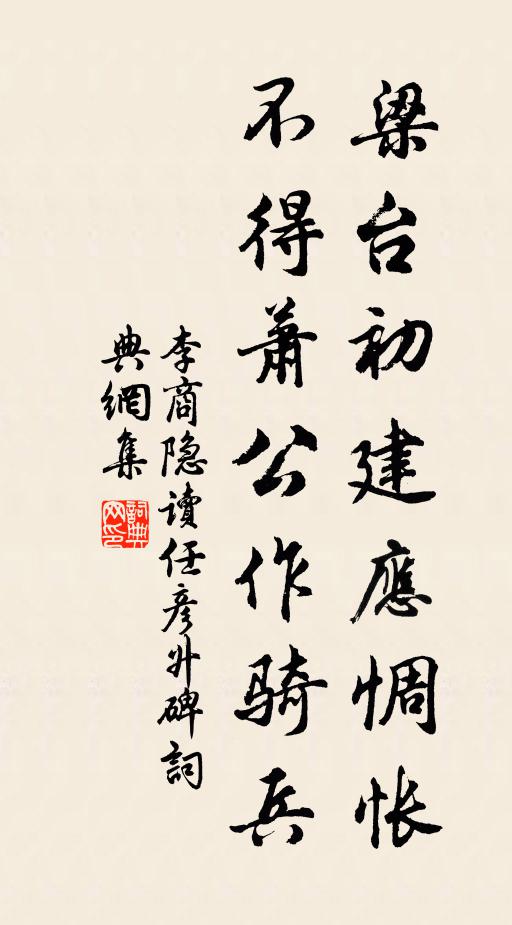 梁台初建應惆怅
不得蕭公作骑兵
李商隐讀任彦升碑詞
典網集
詞典
网印